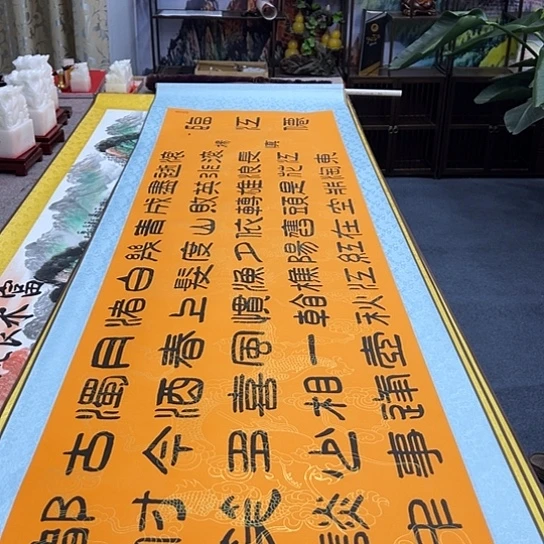 臨江僊
滾滾長江東
逝水浪花淘
盡英雄是非
成敗轉頭空
青山依舊在
幾度夕陽紅
白髮漁樵江
渚上慣看秋
月春風一壺
濁酒喜相逢
古今多少事
都付笑談中